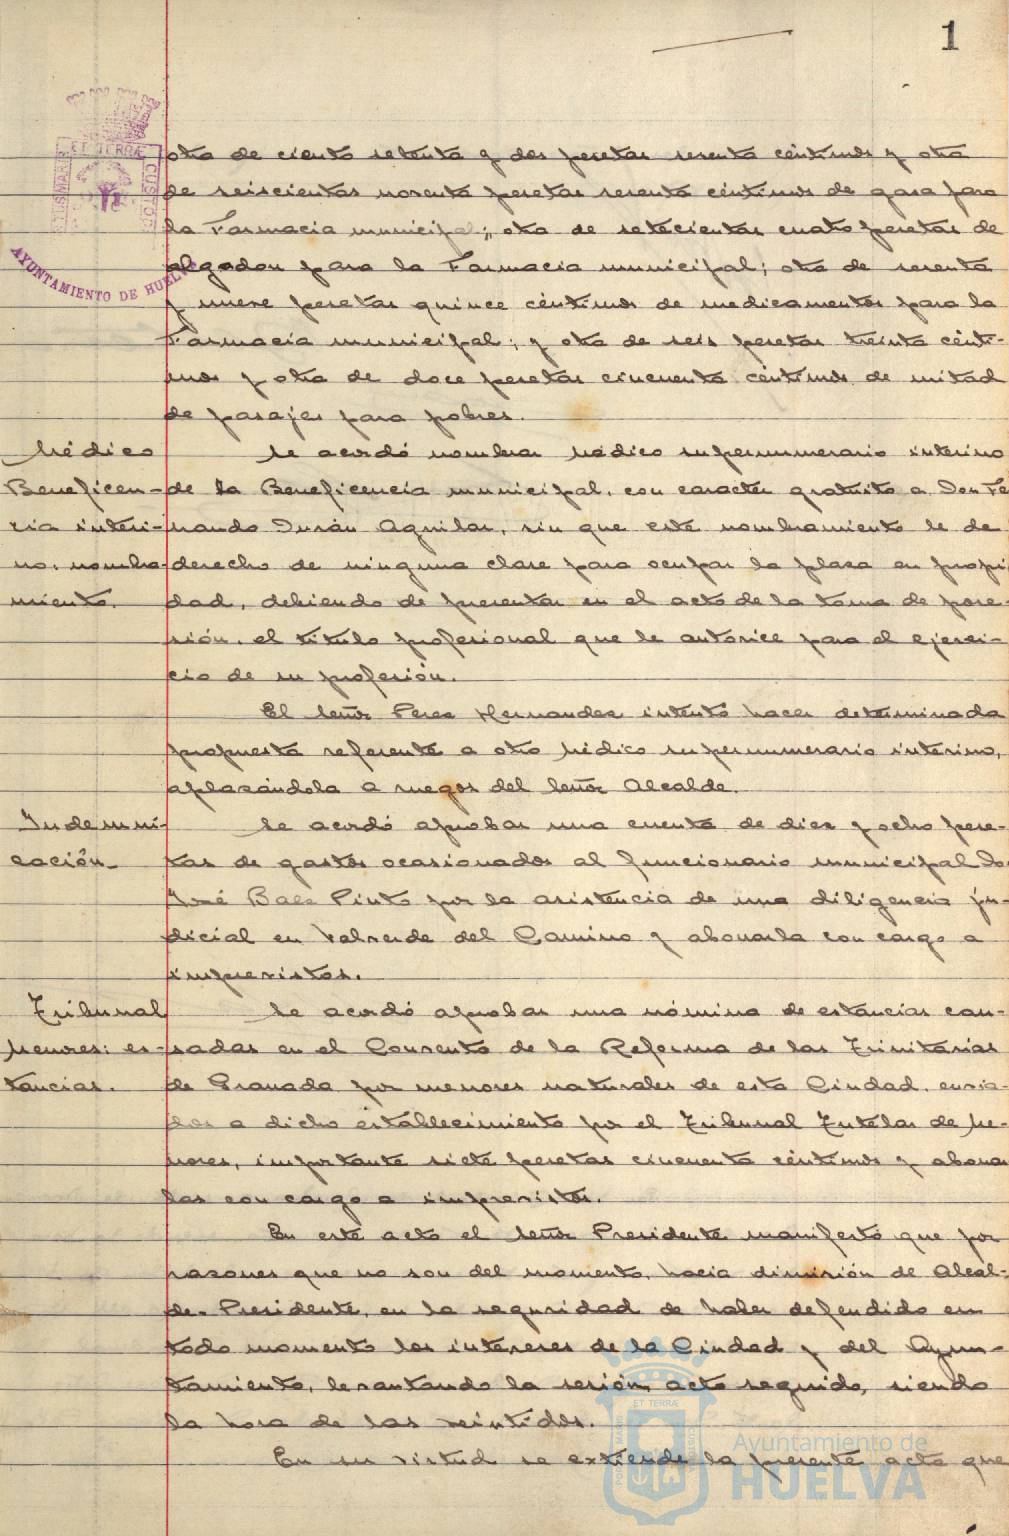 1
ET TERRÆ
CUSTOD
AYUNTAMIENTO DE HUELVA
otra de ciento setenta y dos pesetas sesenta céntimos y otra
de seiscientas noventa pesetas sesenta céntimos de gasa para
la Farmacia municipal; otra de setecientas cuatro pesetas de
algodon para la Farmacia municipal; otra de sesenta
y nueve pesetas quince céntimos de medicamentos para la
Farmacia municipal; y otra de seis pesetas treinta cénti-
mos y otra de doce pesetas cincuenta céntimos de mitad
de pasajes para pobres.
Médico
Beneficen-
cia interi-
no: nombra-
miento.
Se acordó nombrar Médico supernumerario interino
de la Beneficencia municipal, con caracter gratuito a Don Fe
nando Durán Aguilar, sin que este nombramiento le de
derecho de ninguna clase para ocupar la plaza en propi
dad, debiendo de presentar en el acto de la toma de pose-
sión, el título profesional que le autorice para el ejerci-
cio de su profesión.
El Señor Perez Hernandez intentó hacer determinada
propuesta referente a otro Médico supernumerario interino,
aplazándola a ruegos del Señor Alcalde.
Indemni-
cación
Se acordó aprobar una cuenta de diez y ocho pese-
tas de gastos ocasionados al funcionario municipal Do
José Baez Pinto por la asistencia de una diligencia ju-
dicial en Valverde del Camino y abonarla con cargo a
imprevistos.
Tribunal
Menores: es-
tancias.
Se acordó aprobar una nómina de estancias cau-
sadas en el Convento de la Reforma de las Trinitarias
de Granada por menores naturales de esta Ciudad, envia-
dos a dicho establecimiento por el Tribunal Tutelar de Me-
nores, importante siete pesetas cincuenta céntimos y abonar
las con cargo a imprevistos.
En este acto el Señor Presidente manifestó que por
razones que no son del momento, hacía dimisión de Alcal-
de-Presidente, en la seguridad de haber defendido en
todo momento los intereses de la Ciudad y del Ayun-
tamiento, levantando la sesión acto seguido, siendo
la hora de las veintidós.
En su virtud se extiende la presente acta que
ET TERRÆ
Ayuntamiento de
HUELVA